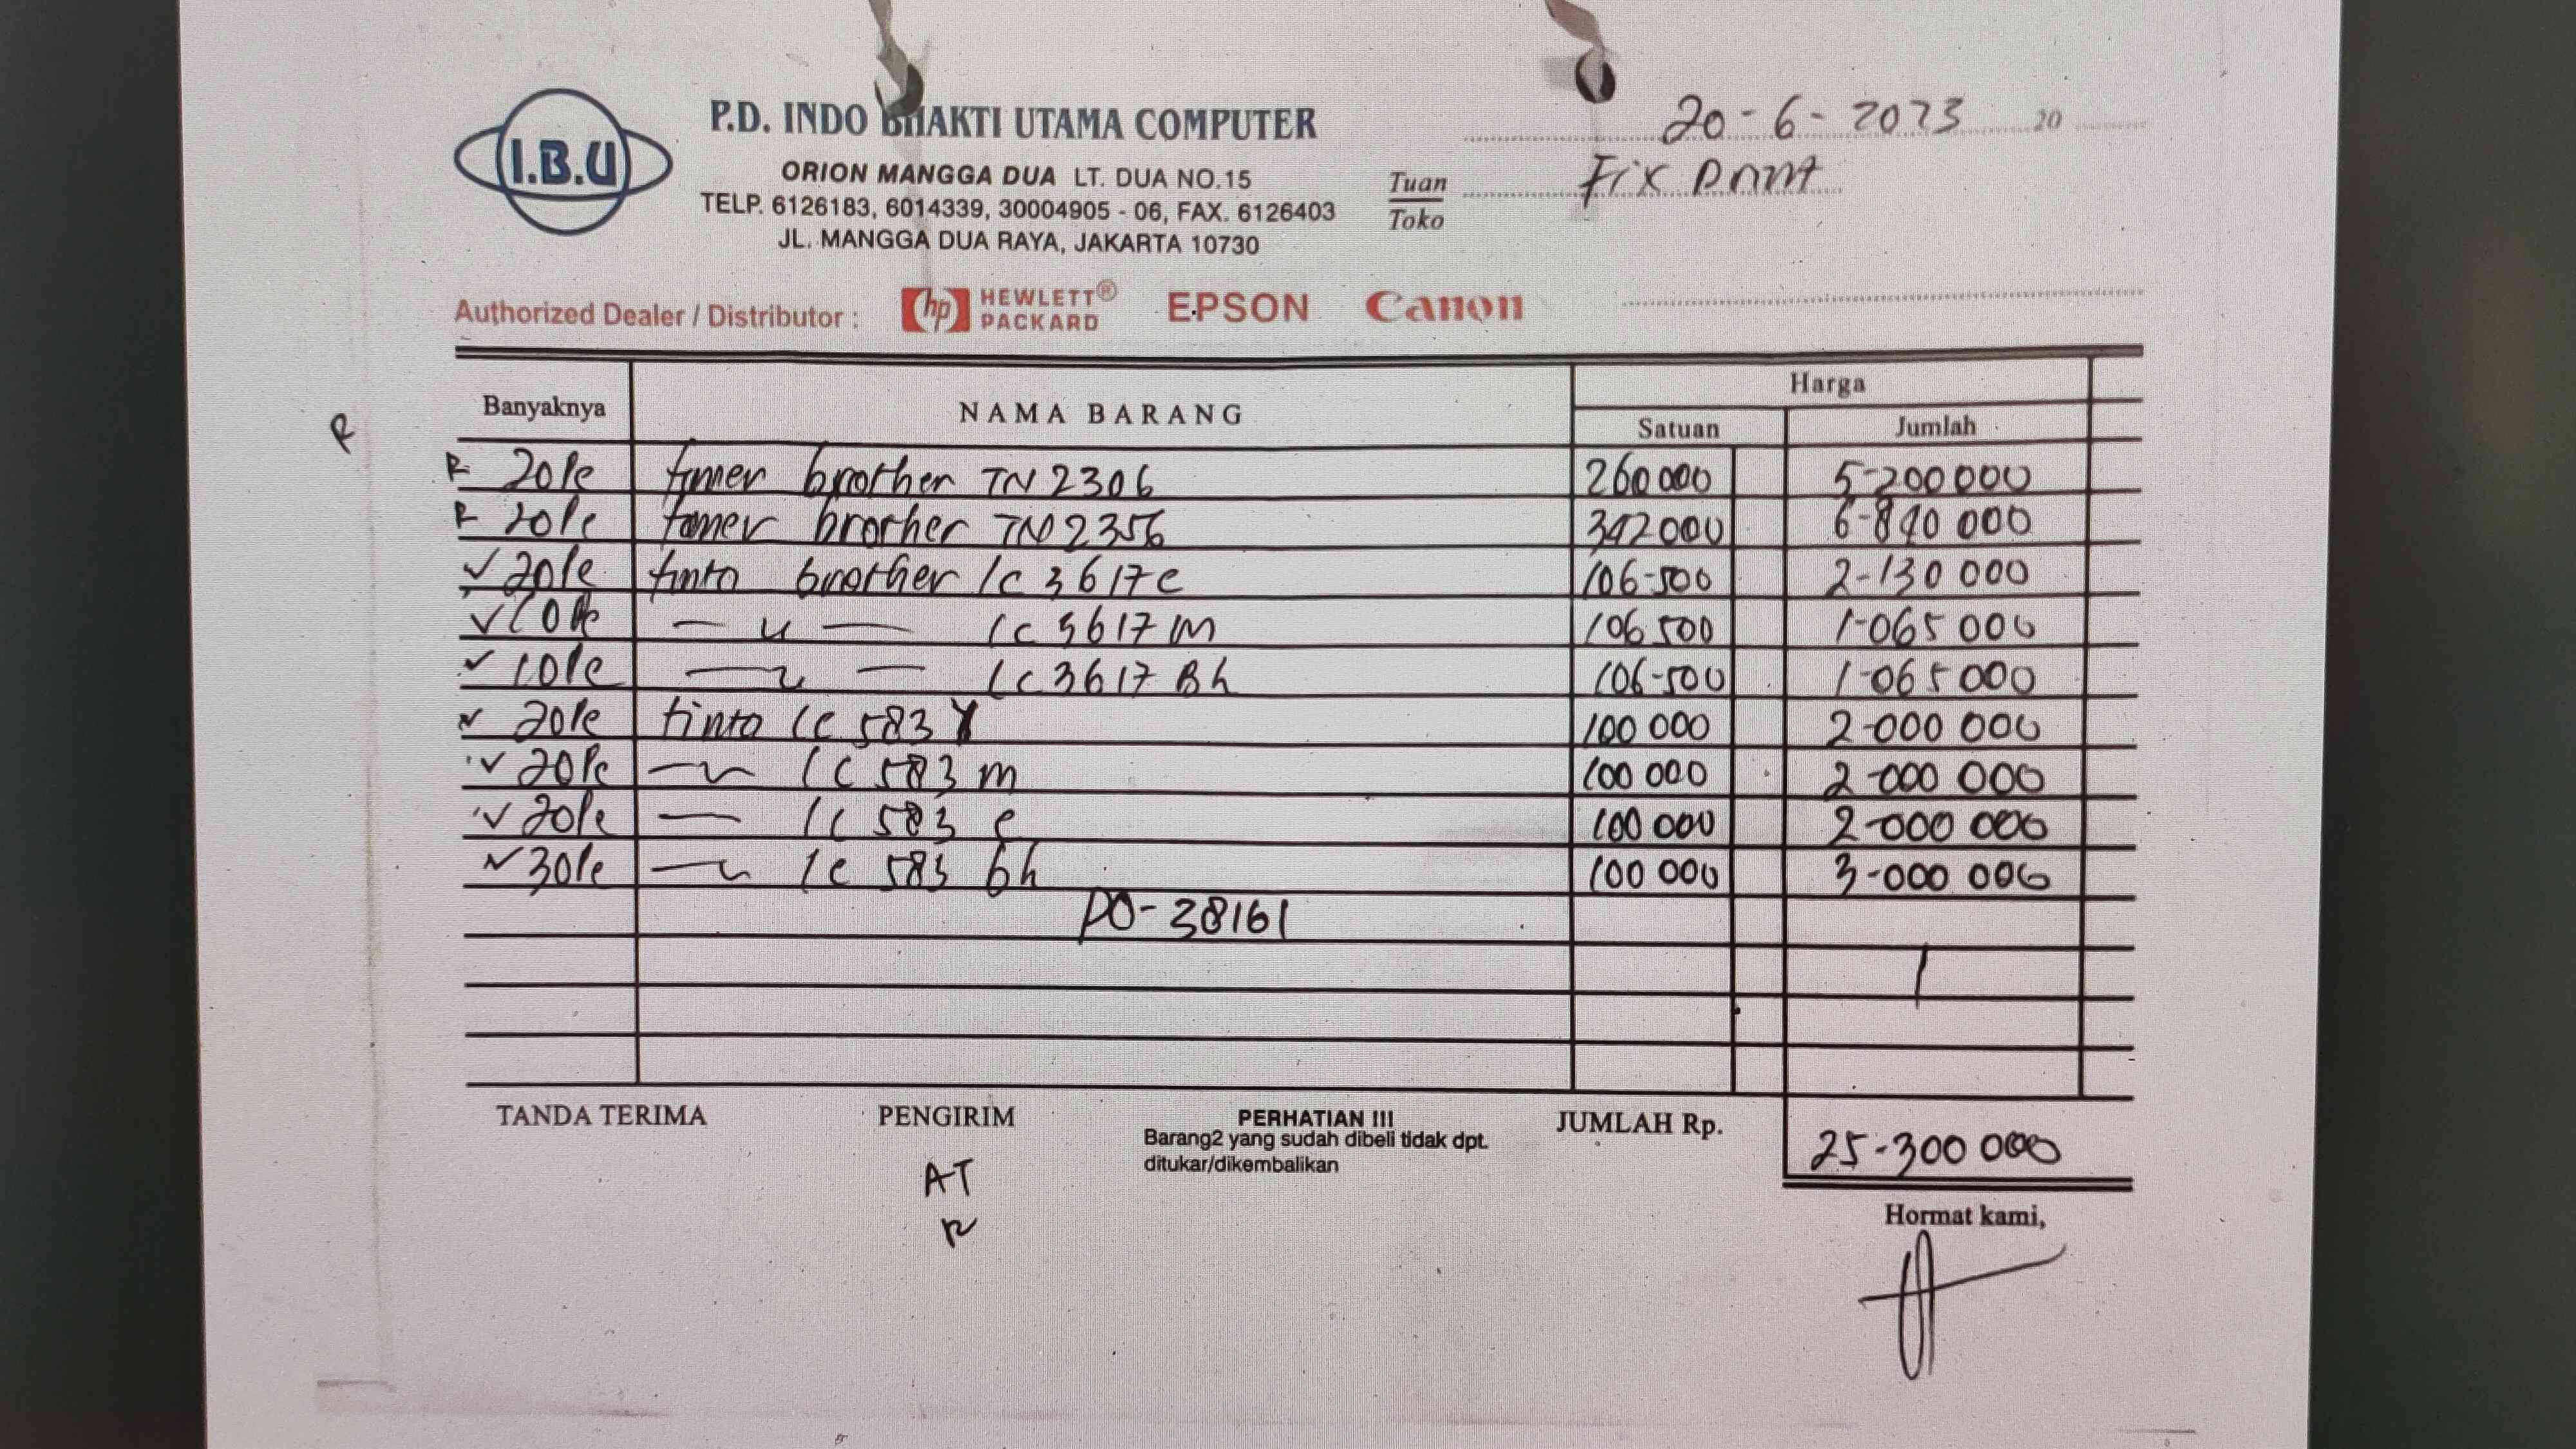 P.D. INDO BHAKTI UTAMA COMPUTER
I.B.U
ORION MANGGA DUA LT. DUA NO.15
TELP. 6126183, 6014339, 30004905 - 06, FAX. 6126403
JL. MANGGA DUA RAYA, JAKARTA 10730
20-6-2023 20
Tuan
Toko
Fix Print
Authorized Dealer / Distributor : hp HEWLETT® PACKARD EPSON Canon
Banyaknya NAMA BARANG Harga
Satuan Jumlah
R
R 20 Pc toner brother TN 2306 260 000 5-200 000
R 20 Pc toner brother TN 2356 342 000 6-840 000
✓ 20 Pc tinta brother lc 3617 c 106-500 2-130 000
✓ 10 Pc — u — lc 3617 m 106 500 1-065 000
✓ 10 Pc — u — lc 3617 Bh 106-500 1-065 000
✓ 20 Pc tinta lc 583 Y 100 000 2-000 000
✓ 20 Pc — u lc 583 m 100 000 2-000 000
✓ 20 Pc — lc 583 c 100 000 2-000 000
✓ 30 Pc — u lc 583 bh 100 000 3-000 000
PO-38161
TANDA TERIMA PENGIRIM PERHATIAN !!! JUMLAH Rp. 25-300 000
Barang2 yang sudah dibeli tidak dpt.
ditukar/dikembalikan
AT
R
Hormat kami,